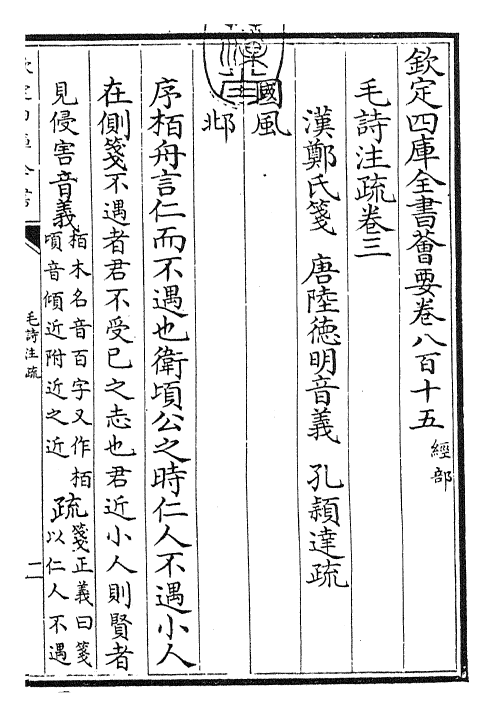 欽定四庫全書薈要卷八百十五 經部
毛詩注疏卷三
漢鄭氏箋 唐陸德明音義 孔穎達疏
國風
邶
序栢舟言仁而不遇也衛頃公之時仁人不遇小人
在側箋不遇者君不受已之志也君近小人則賢者
見侵害音義栢木名音百字又作栢頃音傾近附近之近疏箋正義曰箋以仁人不遇
毛詩注疏
二